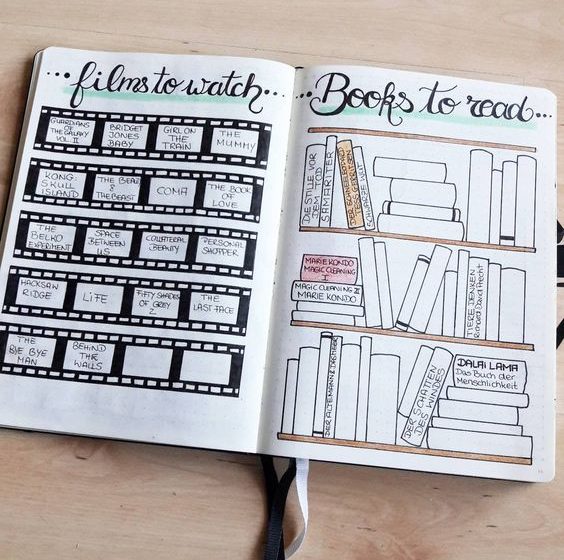 ...films to watch...
GUARDIANS
OF THE
GALAXY
VOL. II
BRIDGET
JONES
BABY
GIRL ON
THE
TRAIN
THE
MUMMY
KONG:
SKULL
ISLAND
THE BEAR
&
THE BEAST
COMA
THE BOOK
OF
LOVE
THE
BELKO
EXPERIMENT
SPACE
BETWEEN
US
COLLATERAL
BEAUTY
PERSONAL
SHOPPER
HACKSAW
RIDGE
LiFE
FIFTY SHADES
OF GREY
2
THE
LAST FACE
THE
BYE BYE
MAN
BEHIND
THE
WALLS
...Books to read...
DIE STILLE VOR
DEM TOD
SAMARITER
SCHWARZE WUT
MARIE KONDO
MAGIC CLEANING
I
MAGIC CLEANING II
MARIE KONDO
TIERE DENKEN
Richard David Precht
DER ALTEMANN &
DER SCHATTEN
DES WINDES
DALAI LAMA
Das Buch der
Menschlichkeit